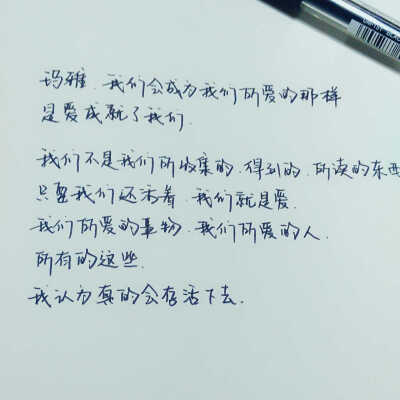 玛雅.我们会成为我们所爱的那样
是爱成就了我们.
我们不是我们所收集的.得到的.所读的东西
只要我们还活着.我们就是爱.
我们所爱的事物.我们所爱的人.
所有的这些.
我认为真的会存活下去.